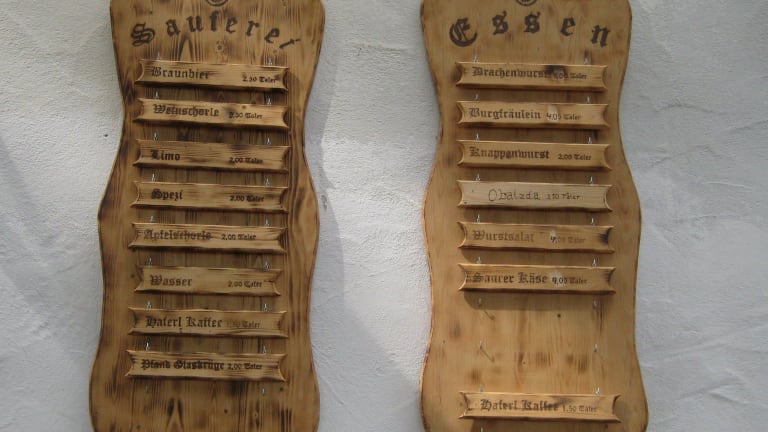 Sauferei
Braunbier 2.50 Taler
Weinschorle 2,50 Taler
Limo 2,00 Taler
Spezi 2,00 Taler
Apfelschorle 2,00 Taler
Wasser 2,00 Taler
Haferl Kaffee 1,50 Taler
Pfand Glaskrüge 2,00 Taler
Essen
Drachenwurst 4,00 Taler
Burgfräulein 4,00 Taler
Knappenwurst 2,00 Taler
Obatzda 3,50 Taler
Wurstsalat 4,00 Taler
Saurer Käse 4,00 Taler
Haferl Kaffee 1,50 Taler